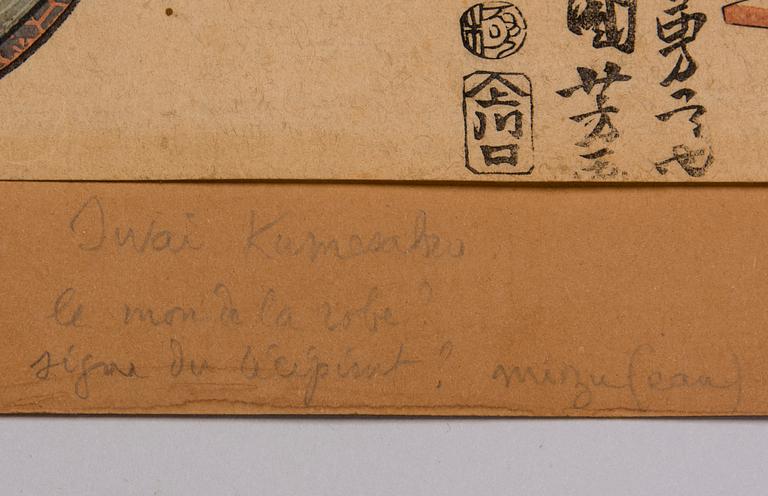 極
上川口
國芳画
Iwai Kumesabro
le mon de la robe?
signe du récipient? mizu (eau)